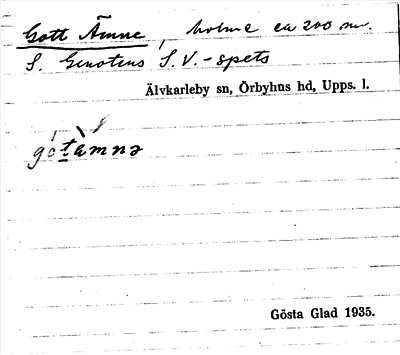 Gott Ämne, holme ca 200 m.
S. Genotens S.V.-spets
Älvkarleby sn, Örbyhus hd, Upps. l.
gótämnə
Gösta Glad 1935.